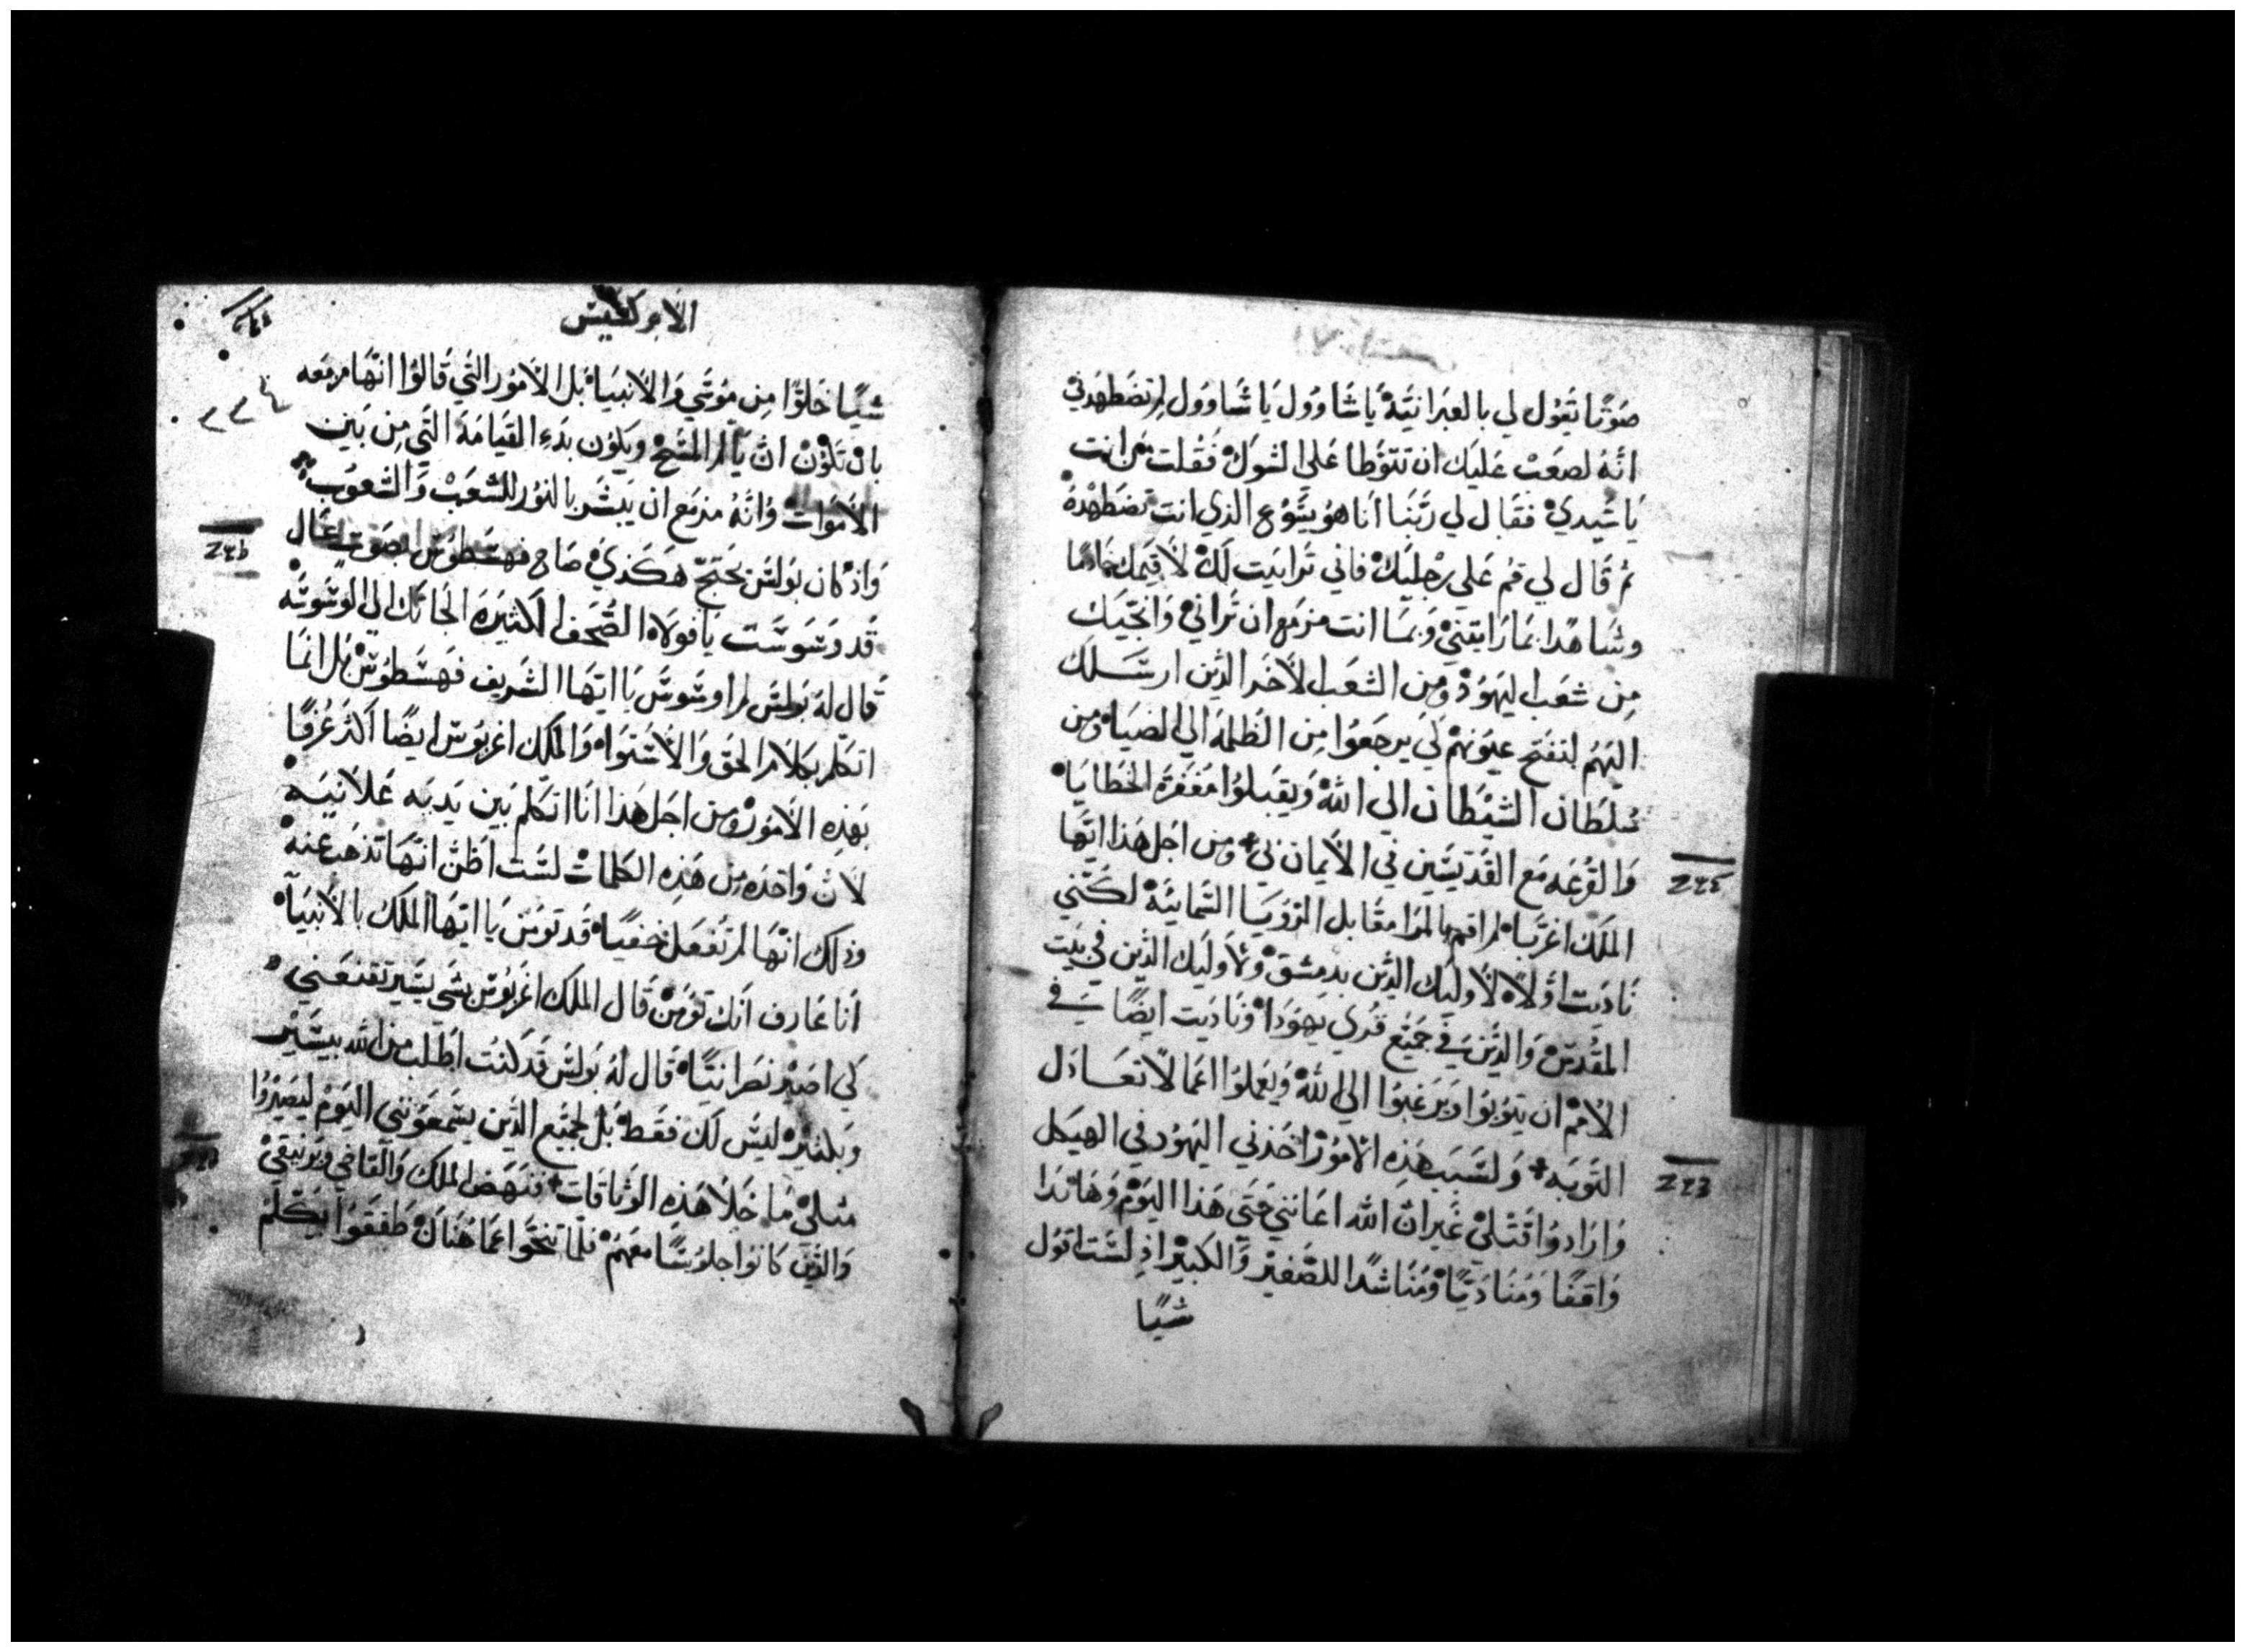 صَوتًا يَقُول لي بالعبرَانيَّة يَا شَاووُل يَا شَاووُل لِمَ تضطَهدني
انَّهُ لصعَبْ عَليَك ان تتوَطا عَلي الشوكْ فَقُلت مَن انت
يَا سَيدي فقَال لي رَبّنَا انَا هوُ يسُوع الذي انت تضطَهْدهُ
ثم قَال لي قم عَلي رجليَكْ فاني ترايَيت لكْ لاقيَمك خادمًا
وشاهدًا بمَا رَايتنيْ وَبمَا انت مزمَع ان تَرانيْ وَانجّيَك
مِن شعَب اليَهوُدْ وَمِن الشعَب الاخَر الذين ارسَلك
اليَهمُ لتفتَح عيوُنهمْ لَكَي يرجَعوُا مِن الظلمَة الي الضيَاء وَمِن
سُلطَان الشيْطَان الي اللهْ وَيقبَلوُا مَغفرَة الخَطايَا
وَالقرعَه مَع القدّيسَين في الايمَان بيْ وَمِن اجَل هَذا ايّهَا
الملَك اغرّبَا لم اقم بالمرَا مقَابل الرُويَا السَّمائيّهْ لكنّني
نَاديَت اوَّلاً لاوليَك الذين بدمشقْ وَلاوليَك الذّين في بيَت
المقْدسْ وَالذين في جميَع قري يَهوَدَا وَنَاديَت ايضًا في
الامَمْ ان يَتوُبوُا وَيَرغبَوُا الي اللهْ وَيعَملوُا اعمَالاً تعَادل
التوَبَه وَلسَبَب هَذِه الامُورْ اخَذني اليَهوُد في الهيَكل
وَارَادوُا قتَليْ غَير انّ الله اعَانني حَتي هَذا اليَوْم وَهَا انَدا
وَاقفًا وَمُنَاديًا وَمُنَاشدًا للصَّغيرْ وَالكبيَر اذ لسَت اقوُل
شيًا
الابركسيس
شيًا خَلوًا مِن موُسَي وَالانبيَا بَل الامُور التَي قَالوُا انّهَا مزمَعه
بان تكوُنْ انّ يَالم المسَيحْ وَيكوُن بَدءِ القيَامَة التَي مِن بَين
الامَوات وَانّهُ مزمَع ان يبَشر بالنوُر للشعَبْ وَالشعوُب
وَاذ كان بوُلسْ يحتجّ هَكَذي صَاح فهسَطوُس بصَوت عَال
قَد وَسوَسَت يَا فوَلا الصُّحف الكثيرَة الجَاتك الي الوَسوَسَه
قَال لهُ بَولسْ لم اوسَوسْ يَا ايّهَا الشَريف فهَسَطوُسْ بَل انمَا
اتكَلم بكلام الحَق وَالاستوَا وَالملَك اغربوُس ايضًا اكثَر عُرفًا
بهَذِه الامُورْ وَمِن اجَل هَذا انَا اتكلّم بَين يَديَه عَلانيَه
لانّ وَاحدَه مِن هَذِه الكلمَات لسَت اظنّ انّهَا تذهَب عنهْ
وذلك انّهَا لم تفعَل خفيًا قَد توَمن يَا ايّهَا الملَك بالانبيَا
انَا عَارف انّك توُمنْ قَال الملَك اغربوُس بشَي يسَير تقنعَني
لكي اصَير نَصرَانيًّا قَال لهُ بَولسْ قَد كنت اطلَب من الله بيسَير
وَبكثيرْ ليسْ لك فقَطْ بَل لجمَيع الذّين يسَمَعوُنني اليَومْ ليصَيرُوا
مثليْ مَا خَلا هَذِه الوثاقَات فنَهَض الملك وَالقَاضي وَبرنيقيْ
وَالذيَن كَانوُا جلوُسًا معَهمْ فلمّا تنَحّوا عَمّا هُنَاكْ طَفقوُا يَتكلّم